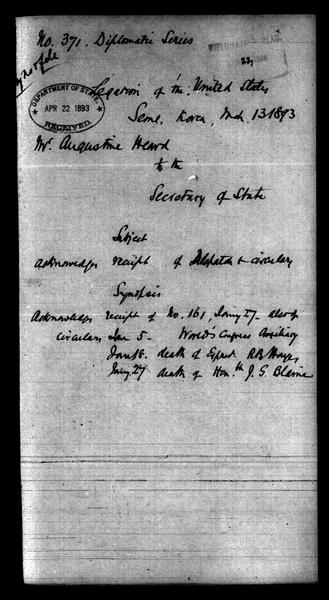 No. 371. Diplomatic Series
DIPLOMATIC
DEPARTMENT OF STATE
APR 22 1893
RECEIVED
Legation of the United States
Seoul, Korea, Mch. 13 1893
Mr. Augustine Heard
to the
Secretary of State
Subject
Acknowledges receipt of Despatch & circulars
Synopsis
Acknowledges receipt of No. 161, Jany 27. also of
circulars Jan 5. World's Congress Auxiliary
Jan 18. death of Ex prest. R B Hayes
Jany 27 death of Hon. J. G. Blaine